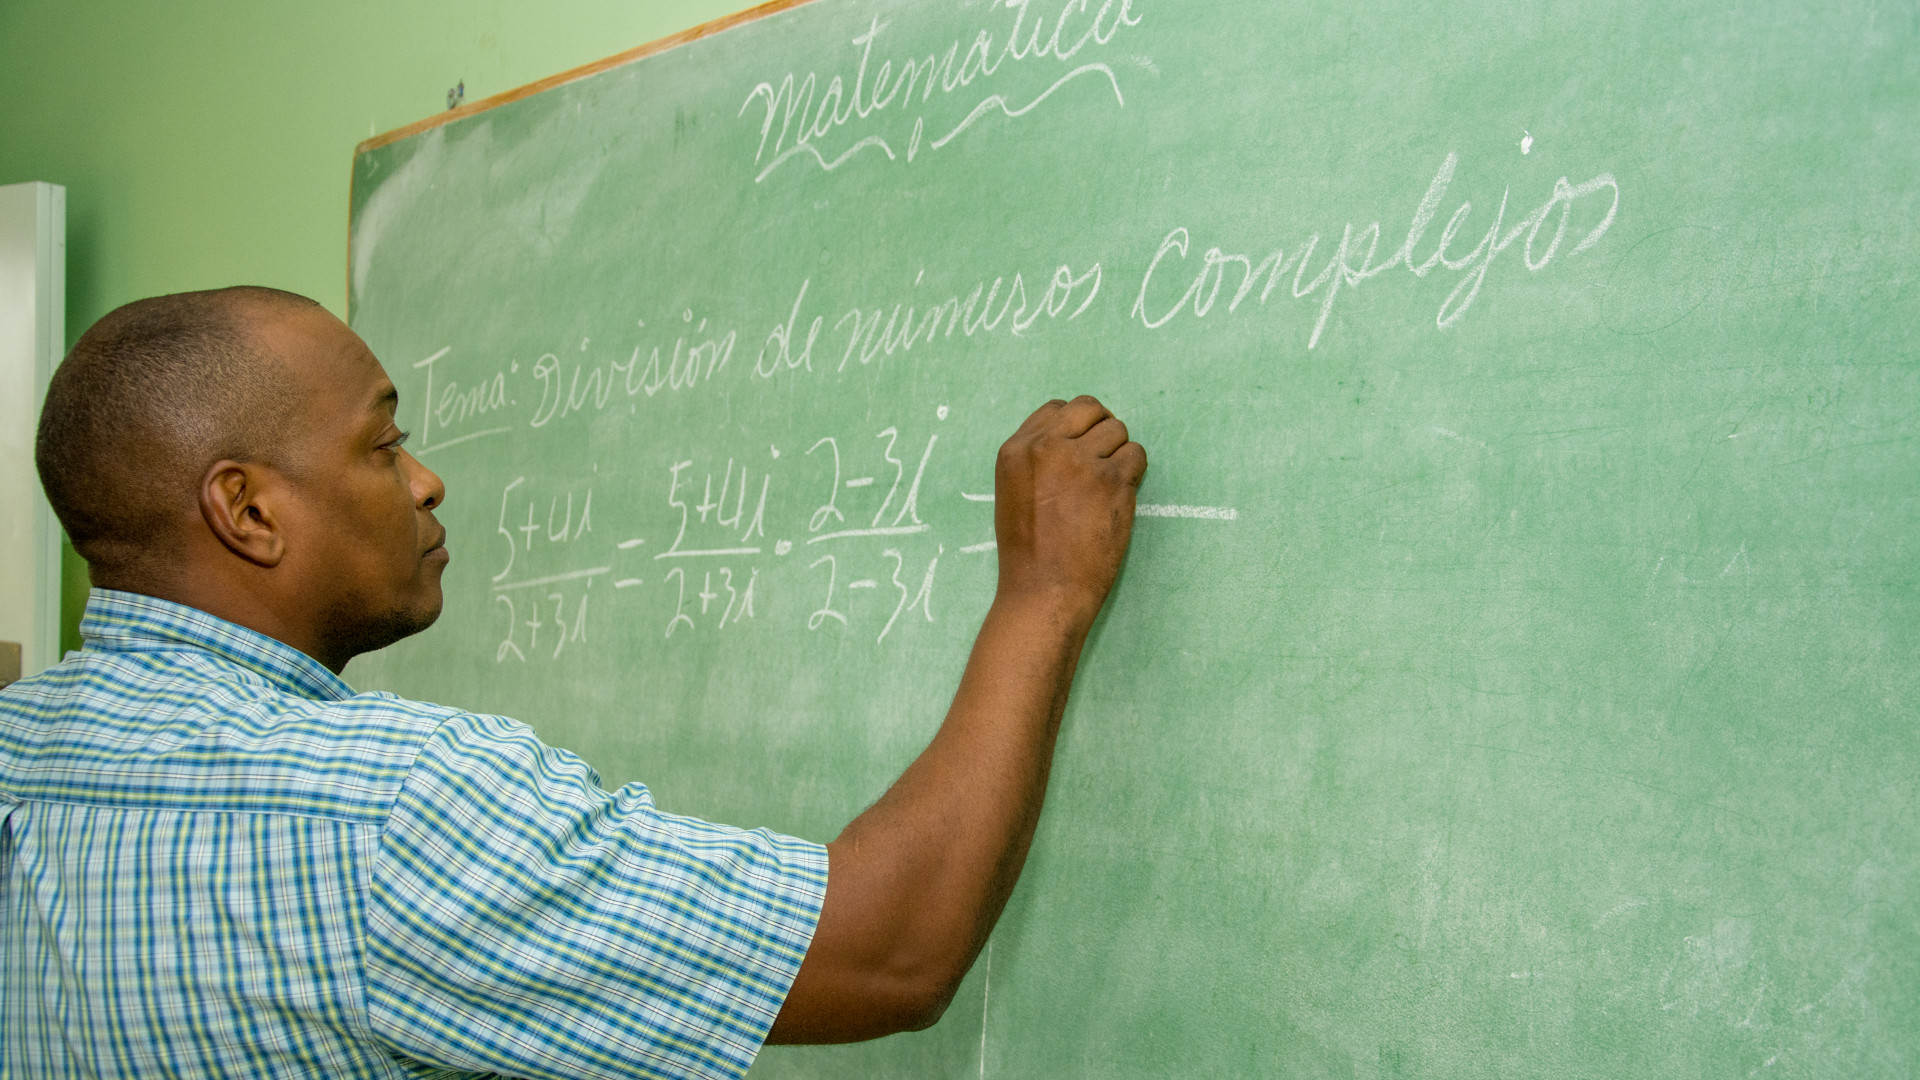 Matemática
Tema: División de números Complejos
5+4i/2+3i = 5+4i/2+3i · 2-3i/2-3i =